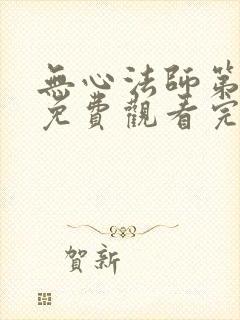 無心法師第
免費觀看完
賀新